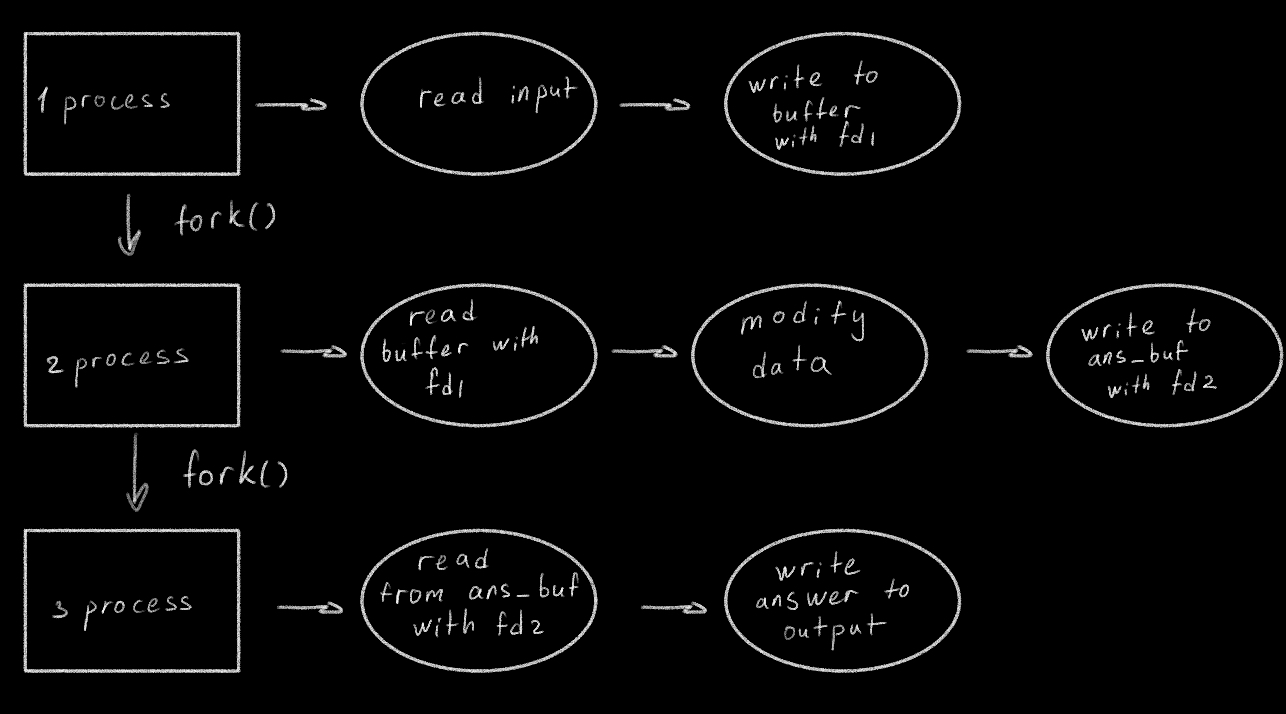 1 process
read input
write to
buffer
with fd1
fork()
2 process
read
buffer with
fd1
modify
data
write to
ans_buf
with fd2
fork()
3 process
read
from ans_buf
with fd2
write
answer to
output